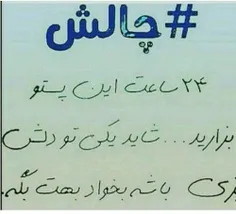 #چالش
۲۴ ساعت این پستو
بزارید... شاید یکی تو دلش
چیزی باشه بخواد بهت بگه.